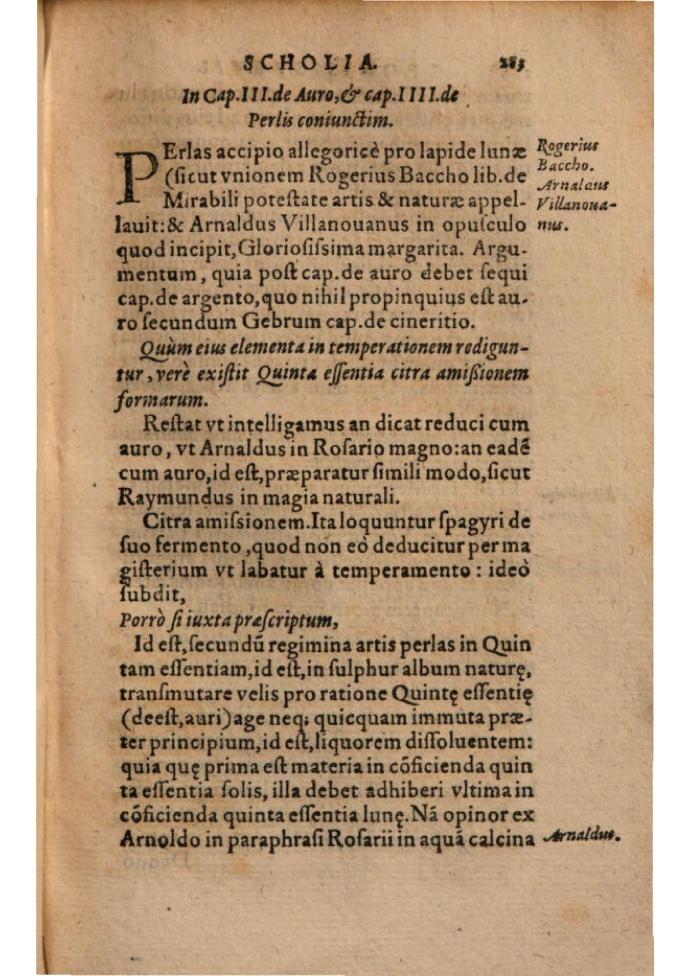 SCHOLIA. 283
In Cap.III.de Auro,& cap.IIII.de
Perlis coniunctim.
PErlas accipio allegoricè pro lapide lunæ
(sicut vnionem Rogerius Baccho lib.de
Mirabili potestate artis & naturæ appel-
lauit:& Arnaldus Villanouanus in opusculo
quod incipit,Gloriosissima margarita. Argu-
mentum, quia post cap.de auro debet sequi
cap.de argento,quo nihil propinquius est au-
ro secundum Gebrum cap.de cineritio.
Rogerius
Baccho.
Arnaldus
Villanoua-
nus.
Quùm eius elementa in temperationem redigun-
tur, verè existit Quinta essentia citra amißionem
formarum.
Restat vt intelligamus an dicat reduci cum
auro, vt Arnaldus in Rosario magno:an eadē
cum auro,id est,præparatur simili modo,sicut
Raymundus in magia naturali.
Citra amissionem.Ita loquuntur spagyri de
suo fermento,quod non eò deducitur per ma
gisterium vt labatur à temperamento: ideò
subdit,
Porrò si iuxta præscriptum,
Id est,secundū regimina artis perlas in Quin
tam essentiam,id est,in sulphur album naturę,
transmutare velis pro ratione Quintę essentię
(deest,auri)age neq; quicquam immuta præ-
ter principium,id est,liquorem dissoluentem:
quia quę prima est materia in cōficienda quin
ta essentia solis, illa debet adhiberi vltima in
cōficienda quinta essentia lunę.Nā opinor ex
Arnoldo in paraphrasi Rosarii in aquā calcina
Arnaldus.